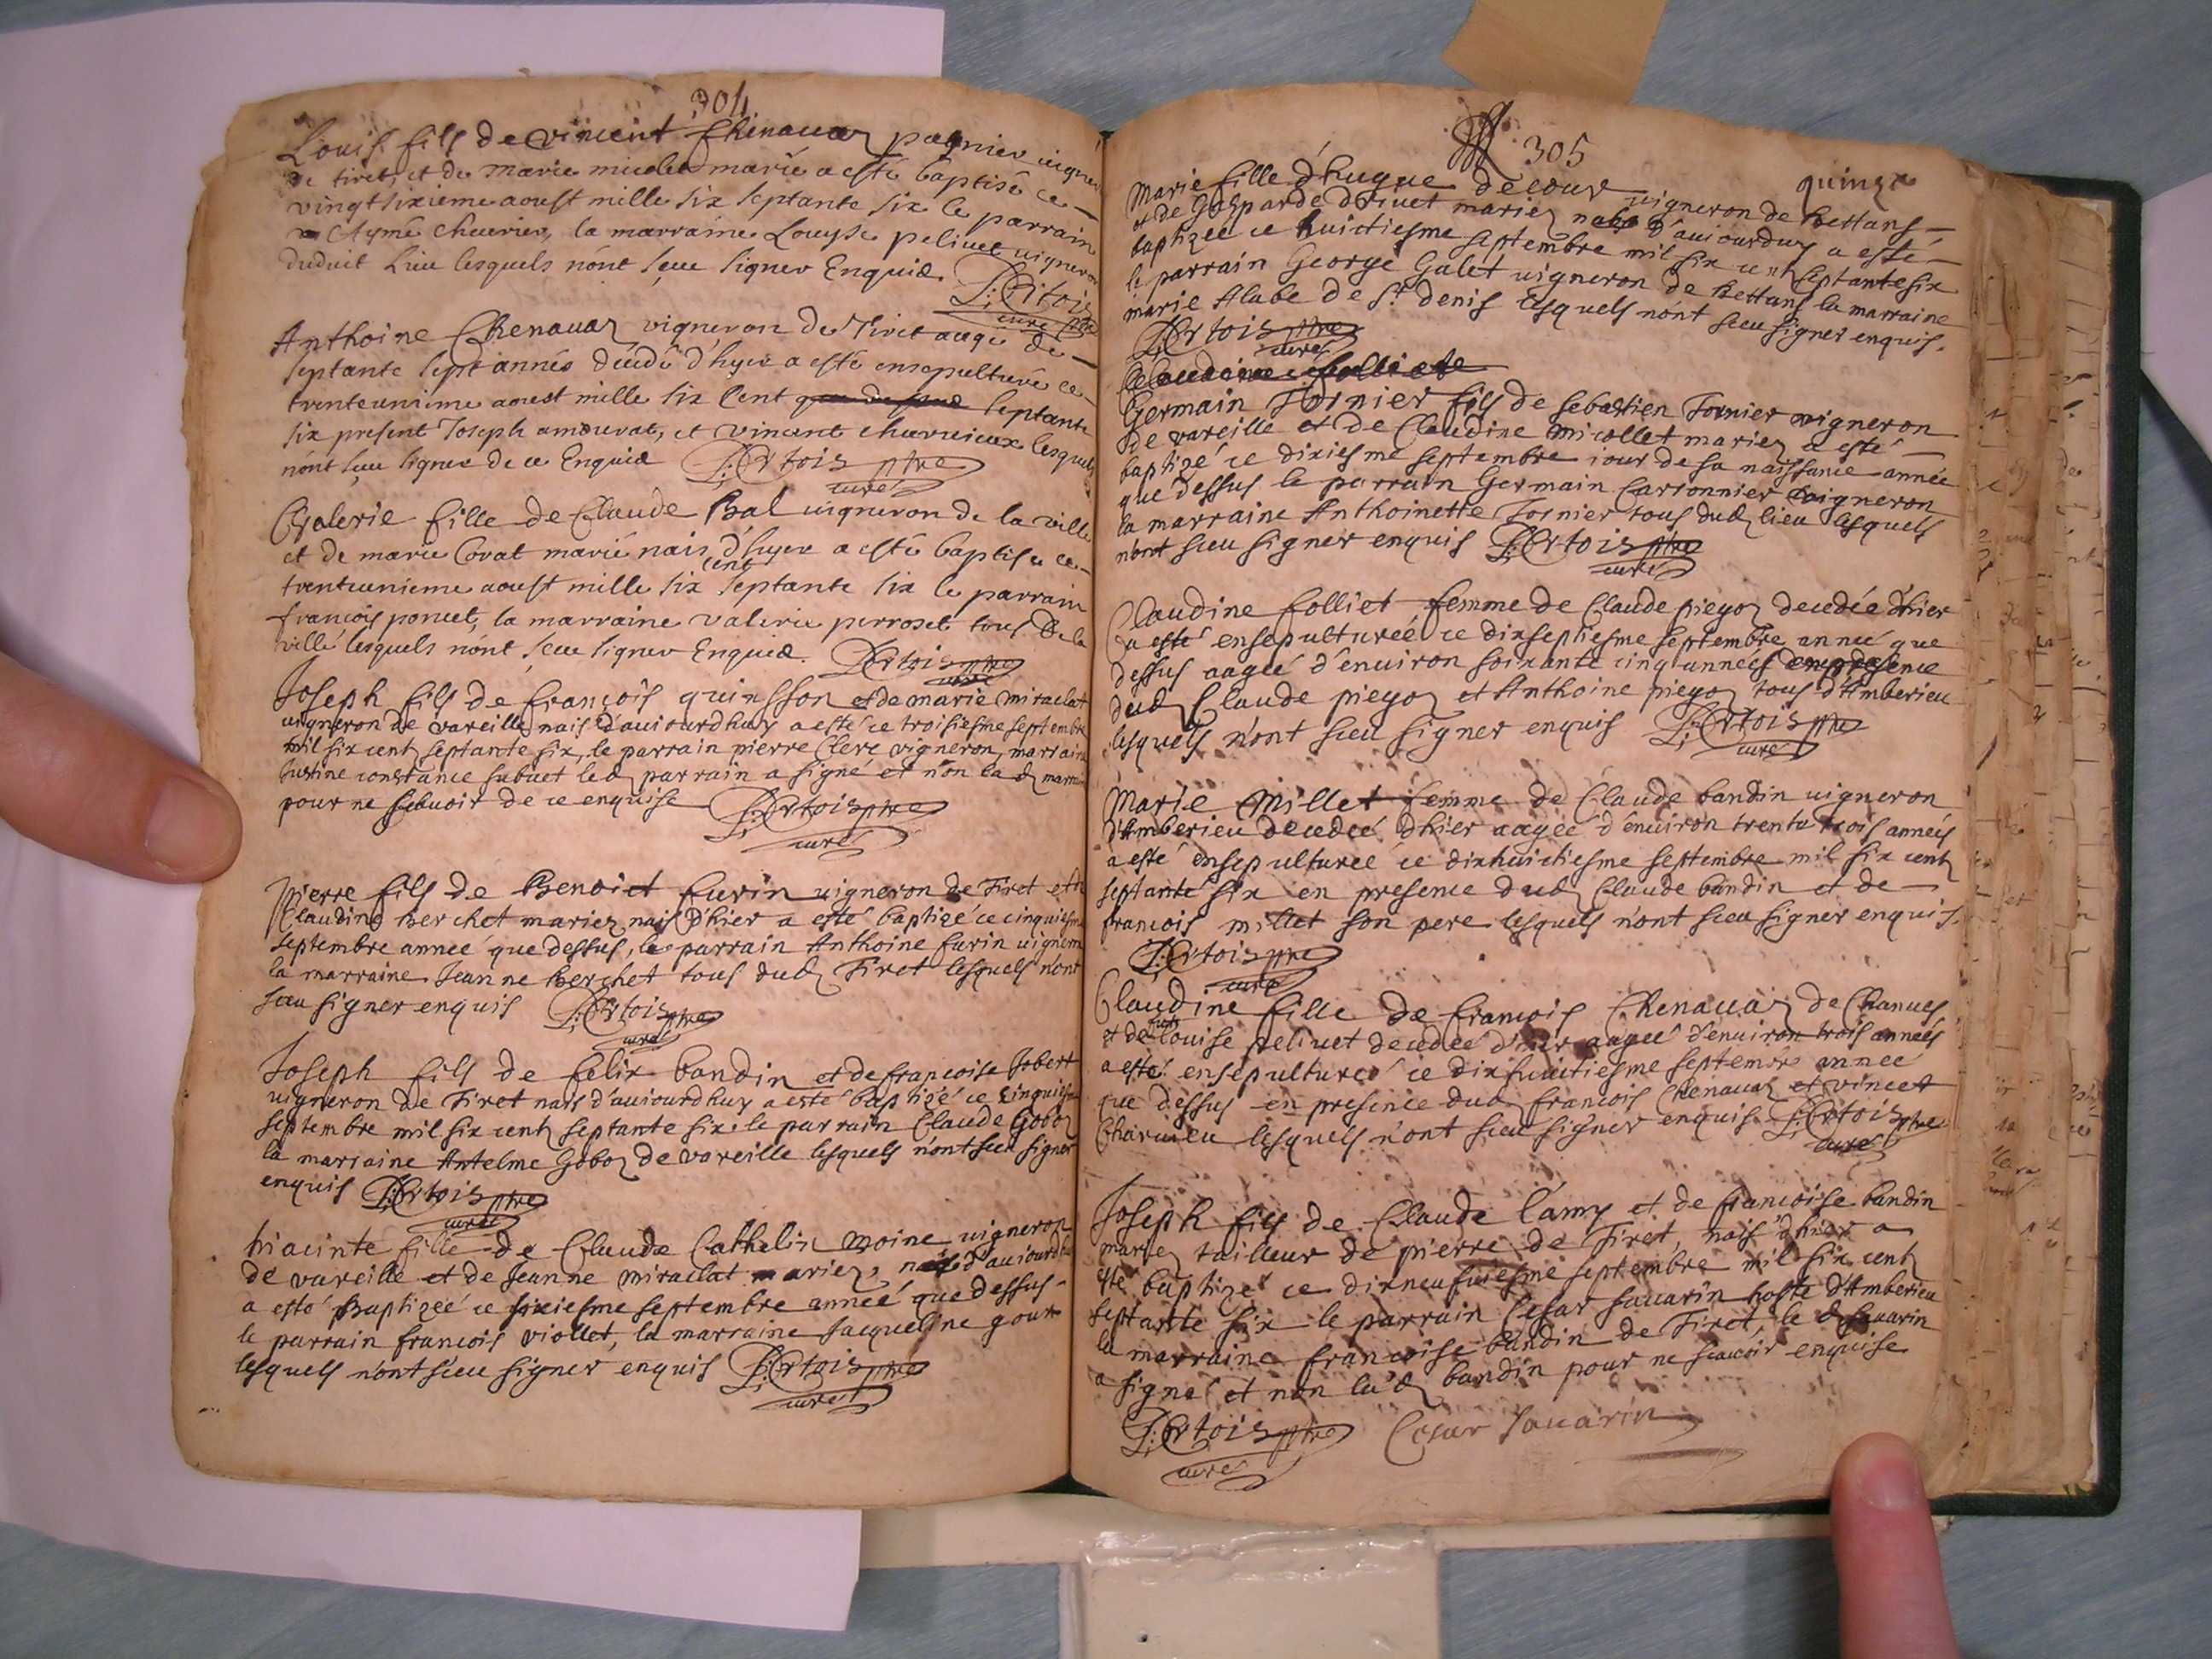 304
Louis fils de vincent Chenauaz pagnier uigner
de tiret, et de marie micolet marié a esté baptisé ce
vingtsixieme aoust mille six septante six le parrain
Aymé cheurier, la marraine Louyse peliuet uigneron
dudict Lieu lesquels nónt sceu signer Enquis
P: Ertois
ptre curé
Anthoine Chenauaz vigneron de Tiret aagé de
septante sept années decedé d'hyer a esté ensepulturé ce
trenteunieme aoust mille six Cent que dessus septante
six present Joseph amourat, et vincent charuieux lesquels
nónt sceu signer de ce Enquis P: Ertois ptre
curé
Valerie fille de Claude Bal uigneron de la ville
et de marie Corat marié nais d'hyer a esté baptisée ce
trenteunieme aoust mille six cent septante six le parrain
francois poncet, la marraine valerie perroset tous de la
ville lesquels nónt sceu signer Enquis. P: Ertois ptre
curé
Joseph fils de françois quinsson et de marie miraclat
uigneron de vareille, nais d'auiourdhuy a esté ce troisiesme septembre
mil six centz septante six, le parrain pierre Clerc vigneron, marraine
Justine constance subuet ledz parrain a signé et non ladz marraine
pour ne scauoir de ce enquise P: Ertois ptre
curé
Pierre fils de Benoict furin uigneron de Tiret et de
Claudine berchet mariez nais d'hier a esté baptizé ce cinquiesme
septembre anneé que dessus, le parrain Anthoine furin uigneron
la marraine Jeanne berchet tous dudz Tiret lesquels n'ont
sceu signer enquis P: Ertois ptre
curé
Joseph fils de felix bandin et de francoise Jobert
uigneron de Tiret nais d'auiourdhuy a esté baptizé ce cinquiesme
septembre mil six centz septante six. le parrain Claude Goboz
la marraine Antelme Goboz de vareille lesquels n'ont sceu signer
enquis P: Ertois ptre
curé
hiacinte fille de Claude Cathelin moine uigneron
de vareille et de Jeanne miraclat mariez, nais d'auiourd'
a esté Baptizeé ce sixiesme septembre anneé que dessus
le parrain francois viollet, la marraine Jacqueline
lesquels n'ont sceu signer enquis P: Ertois ptre
curé
305
quinze
Marie fille d'hugue decour uigneron de bettans
et de Gasparde driuet mariez d'auiourduy a esté
baptizeé ce huictiesme septembre mil six cent septante six
le parrain George Galet uigneron de Bettans la marraine
marie Alabe de St denis lesquels n'ont sceu signer enquis.
P: Ertois ptre
curé
Claudine folliet
Germain Tornier fils de sebastien Tornier vigneron
de vareille et de Claudine micollet mariez a esté
baptizé ce dixiesme septembre iour de sa naissance anneé
que dessus le parrain Germain Carronnier uigneron
la marraine Anthoinette Tornier tous dudz lieu lesquels
n'ont sceu signer enquis P: Ertois ptre
curé
Claudine folliet femme de Claude piegoz decedée d'hier
a esté ensepultureé ce dixseptiesme septembre anneé que
dessus aageé d'enuiron soixante cinq anneés en presence
dudz Claude piegoz et Anthoine piegoz tous d'Amberieu
lesquels n'ont sceu signer enquis P: Ertois ptre
curé
Marie Millet femme de Claude bandin uigneron
d'Amberieu decedeé d'hier aageé d'enuiron trente trois anneés
a esté ensepultureé ce dixhuictiesme septembre mil six centz
septante six en presence dudz Claude bandin et de
francois millet son pere lesquels n'ont sceu signer enquis.
P: Ertois ptre
curé
Claudine fille de francois Chenauaz de Chanues
et de Louise peliuet decedeé d'hier aageé d'enuiron trois anneés
a esté ensepultureé ce dixhuictiesme septembre anneé
que dessus en presence dudz francois Chenauaz et vincet
Charuieu lesquels n'ont sceu signer enquis P: Ertois ptre
curé
Joseph fils de Claude lamy et de francoise bandin
mariez tailleur de pierre de Tiret, nais d'hier a
esté baptizé ce dixneufuiesme septembre mil six centz
septante six le parrain Cesar sauarin hoste d'Amberieu
la marraine francoise bandin de Tiret, le dz sauarin
a signé et non ladz bandin pour ne scauoir enquise
P: Ertois ptre Cesar Sauarin
curé